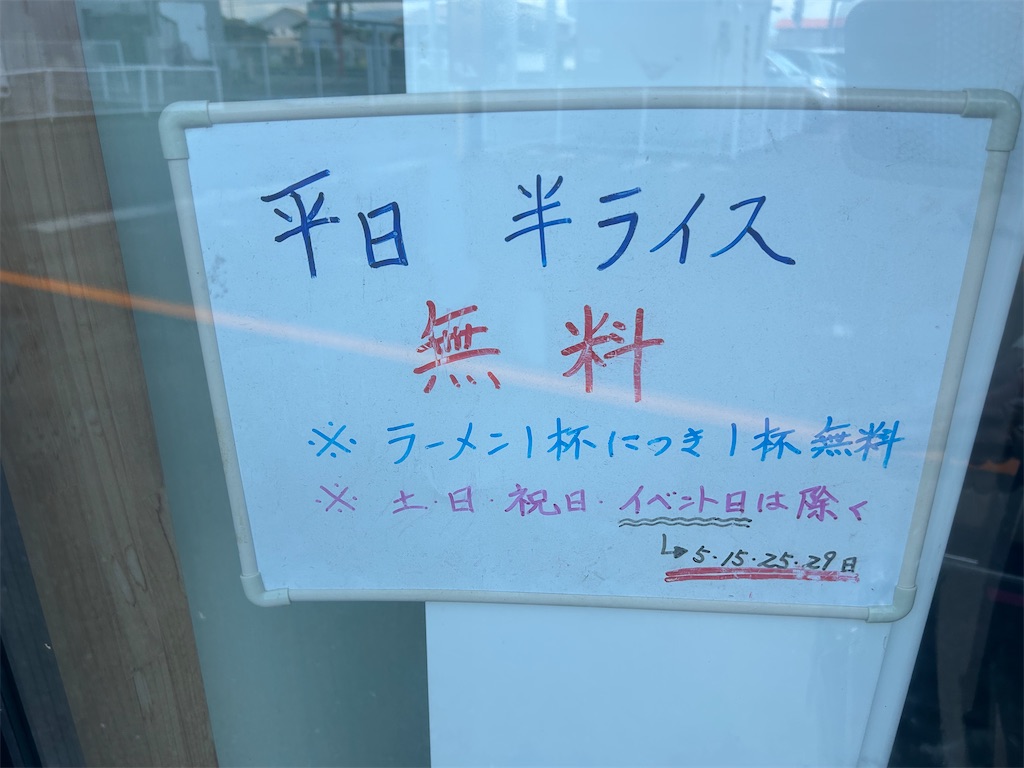 平日 半ライス
無料
※ ラーメン1杯につき1杯無料
※ 土・日・祝日・イベント日は除く
↳ 5・15・25・29日